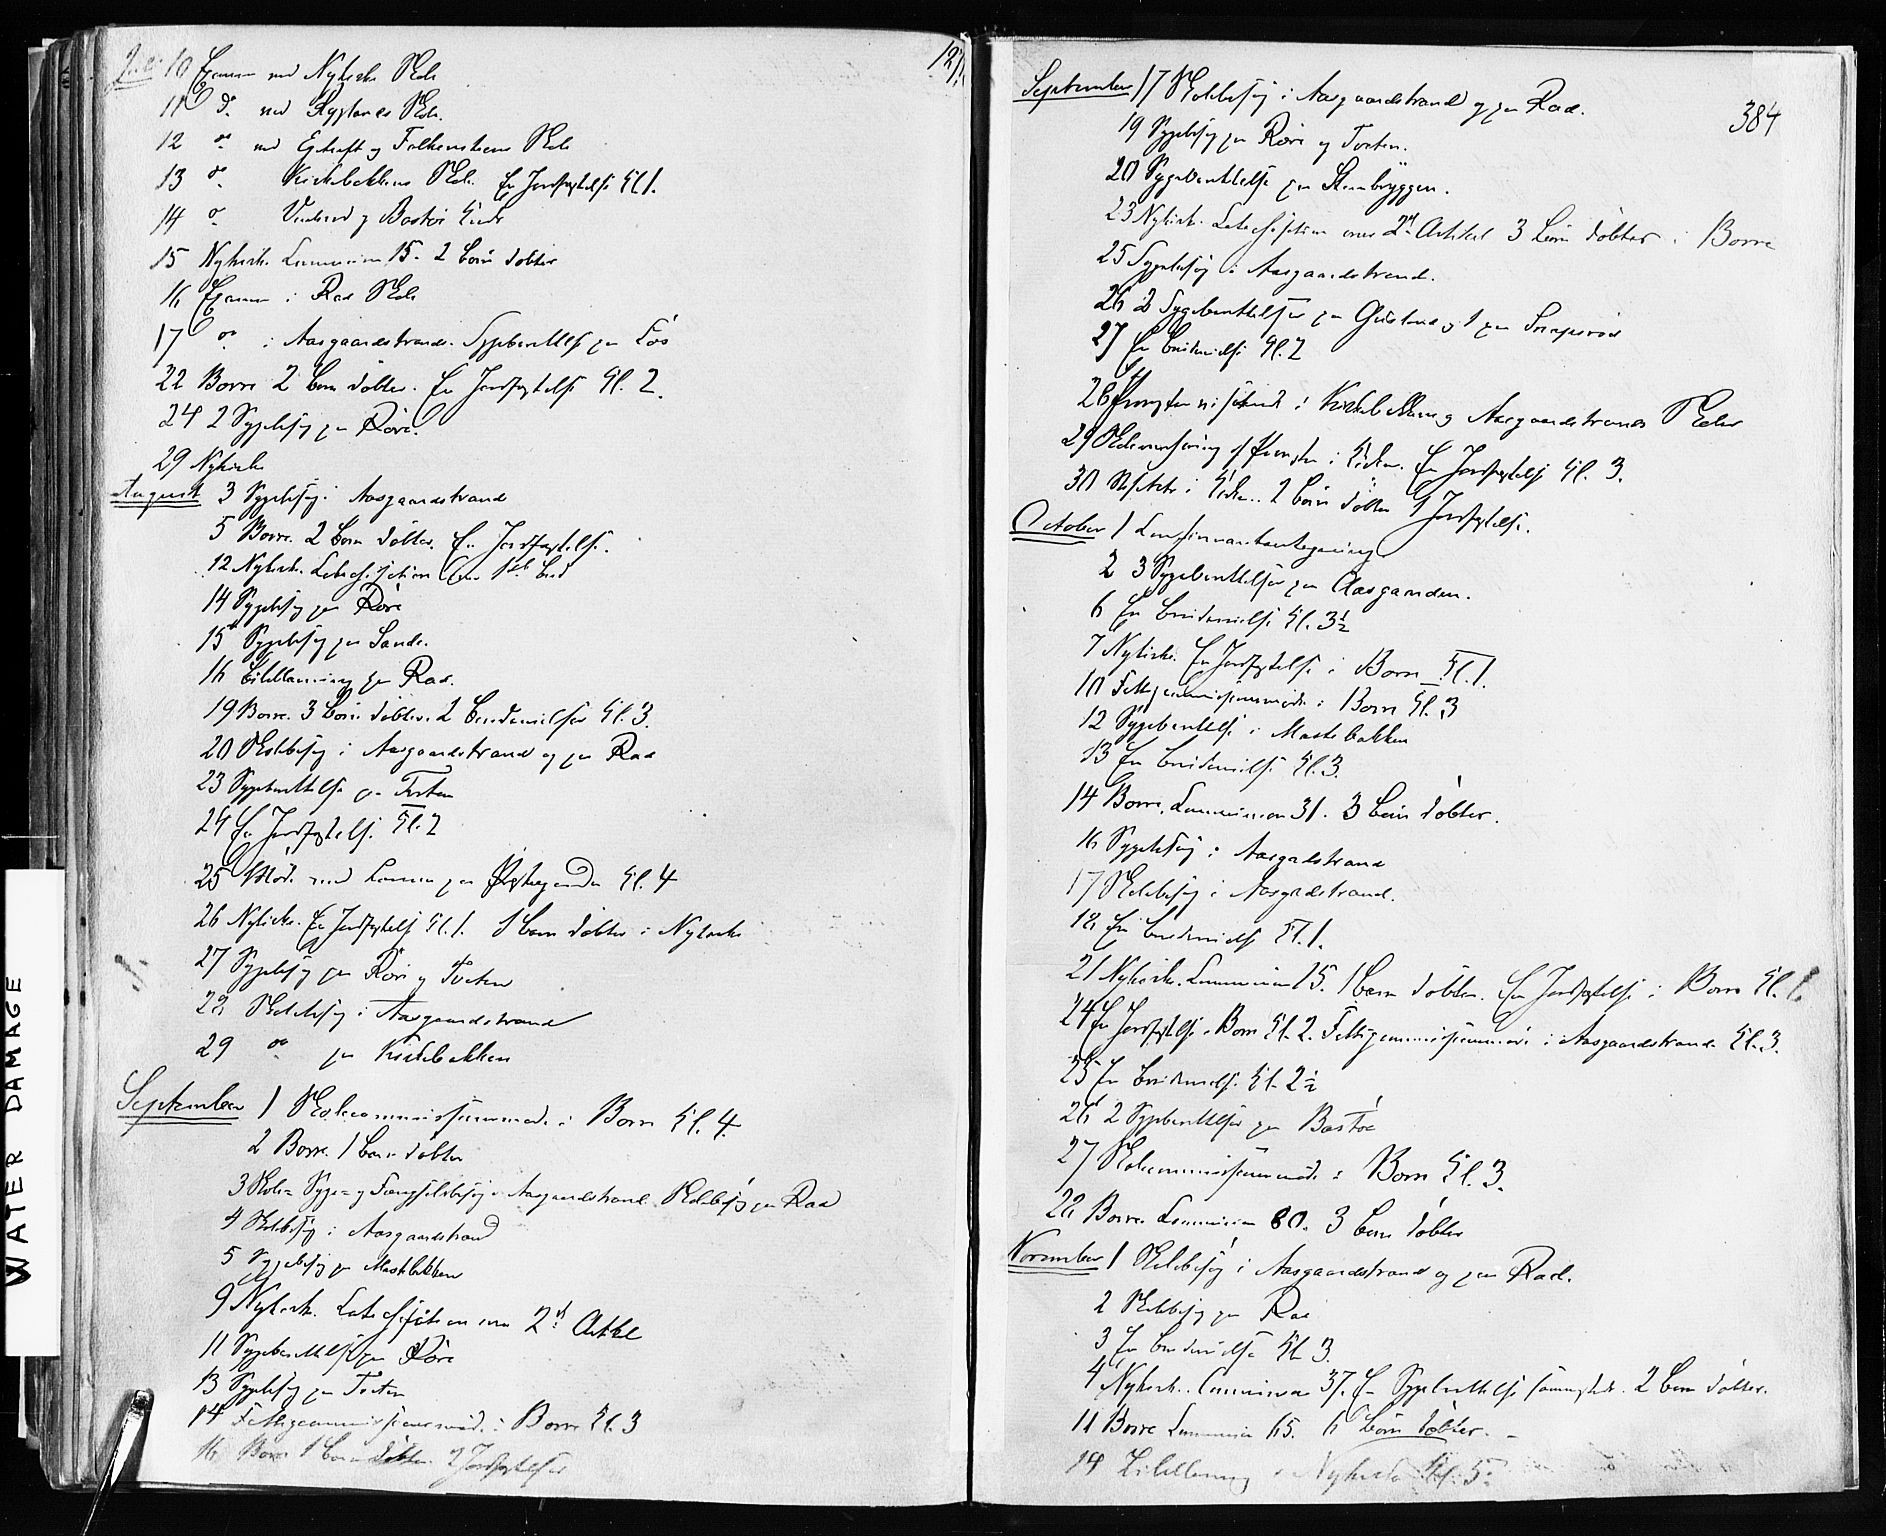 Juli 10 Examen ved Nykirke Skole
11 do ved Skole.
12 do ved og Falkensteens Skole
13 do Kirkebakkens Skole. En Jordfæstelse Kl 1.
14 do og Bastø
15 Nykirke Communion 15. 2 Børn døbte
16 Examen i Rae Skole
17 do i Aasgaardstrand. Sygeberettelse paa
22 Borre 2 Børn døbte. En Jordfæstelse Kl. 2.
24 2 Sygebesøg paa Røre.
29 Nykirke
August 3 Sygebesøg i Aasgaardstrand
5 Borre. 2 Børn døbte. En Jordfæstelse.
12 Nykirke. Catechisation over 1ste Bud
14 Sygebesøg paa Røre
15 Sygebesøg paa Sande.
16 paa Rae.
19 Borre. 3 Børn døbte. 2 Brudevielser Kl. 3.
20 Skolebesøg i Aasgaardstrand og paa Rae
23 Sygeberettelse paa Tveten
24 En Jordfæstelse Kl. 2
25 Møde med paa Kl. 4
26 Nykirke. En Jordfæstelse Kl. 1. 1 Barn døbt i Nykirke
27 Sygebesøg paa Røre og Tveten
28 Skolebesøg i Aasgaardstrand
29 do paa Kirkebakken
September 1 Skolecommissionsmøde i Borre Kl. 4.
2 Borre. 1 Barn døbt
3 Skole= Syge= og Fængselsbesøg i Aasgaardstrand. Skolebesøg paa Rae
4 Skolebesøg i Aasgaardstrand
5 Sygebesøg paa Mastebakken
9 Nykirke. Catechisation over 2d Artikel
11 Sygeberettelse paa Røre
13 Sygebesøg paa Tveten
14 Fattigcommissionsmøde i Borre Kl. 3
16 Borre 1 Barn døbt. 2 Jordfæstelser
384
September 17 Skolebesøg i Aasgaardstrand og paa Rae.
19 Sygebesøg paa Røre og Tveten.
20 Sygeberettelse paa Steenbryggen.
23 Nykirke. Catechisation over 2d Artikel 3 Børn døbte i Borre
25 Sygebesøg i Aasgaardstrand.
26 2 Sygeberettelser paa og 1 paa
27 En Brudevielse Kl. 2
28 Provsten visiterede i Kirkebakkens og Aasgaardstrands Skoler
29 af Provsten i Kirken. En Jordfæstelse Kl. 3.
30 Visitats i Kirken. 2 Børn døbte 1 Jordfæstelse.
October 1 Confirmantantegning
2 3 Sygeberettelser paa Aasgaarden.
6 En Brudevielse Kl. 3½
7 Nykirke. En Jordfæstelse i Borre Kl. 1.
10 Fattigcommissionsmøde i Borre Kl. 3
12 Sygeberettelse i Mastebakken
13 En Brudevielse Kl. 3.
14 Borre. Communion 31. 3 Børn døbte.
16 Sygebesøg i Aasgaardstrand
17 Skolebesøg i Aasgaardstrand.
18 En Brudevielse Kl. 1.
21 Nykirke. Communion 15. 1 Barn døbt. En Jordfæstelse i Borre Kl. 1.
24 En Jordfæstelse i Borre Kl. 2. Fattigcommissionsmøde i Aasgaardstrand Kl. 3.
25 En Brudevielse Kl. 2½
26 2 Sygeberettelser paa Bastøe
27 Skolecommissionsmøde i Borre Kl. 3.
28 Borre. Communion 80. 3 Børn døbte
November 1 Skolebesøg i Aasgaardstrand og paa Rae.
2 Skolebesøg paa Rae
3 En Brudevielse Kl. 3.
4 Nykirke. Communion 37. En Sygeberettelse sammesteds. 2 Børn døbte.
11 Borre Communion 65. 6 Børn døbte.
14 i Nykirke Kl. 5.
WATER DAMAGE